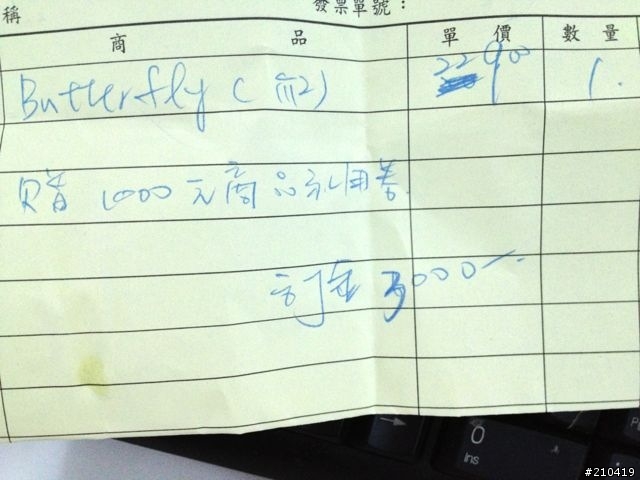 稱
發票單號：
商 品 單 價 數 量
Butterfly ( 22900 1.
贈 1000元商品利用卷.
訂金 3000
0
Ins
#210419